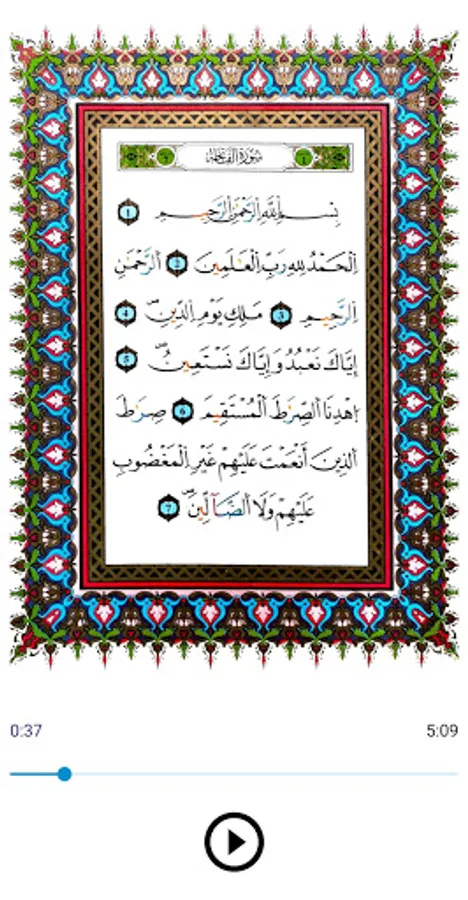 سُورَةُ الفَاتِحَة
بِسْمِ اللَّهِ الرَّحْمَٰنِ الرَّحِيمِ ١
الْحَمْدُ لِلَّهِ رَبِّ الْعَٰلَمِينَ ٢ الرَّحْمَٰنِ
الرَّحِيمِ ٣ مَلِكِ يَوْمِ الدِّينِ ٤
إِيَّاكَ نَعْبُدُ وَإِيَّاكَ نَسْتَعِينُ ٥
اهْدِنَا الصِّرَٰطَ الْمُسْتَقِيمَ ٦ صِرَٰطَ
الَّذِينَ أَنْعَمْتَ عَلَيْهِمْ غَيْرِ الْمَغْضُوبِ
عَلَيْهِمْ وَلَا الضَّآلِّينَ ٧
0:37 5:09